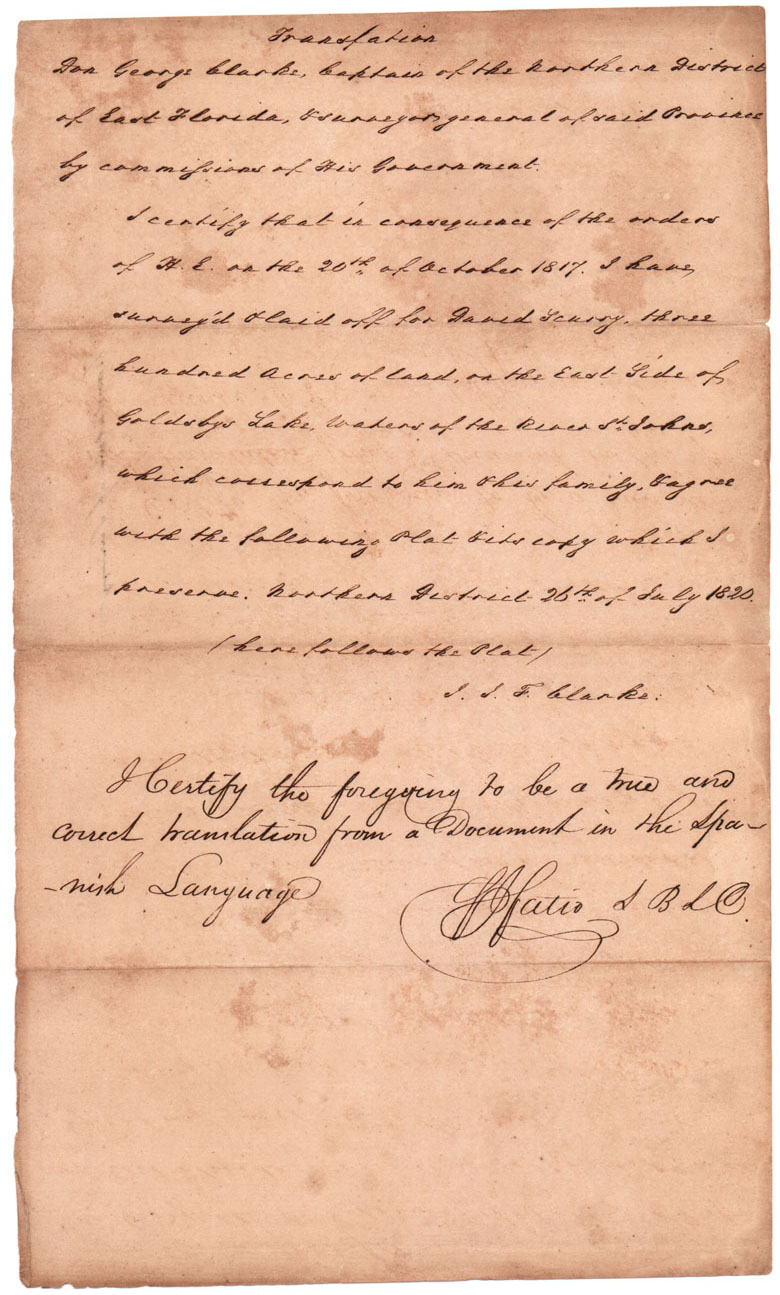 Translation
Don George Clarke, Captain of the Northern District
of East Florida, & surveyor general of said Province
by commissions of His Government.
I certify that in consequence of the orders
of H. E. on the 20th of October 1817. I have
survey'd & laid off for David Scurry, three
hundred Acres of land, on the East Side of
Goldsbys Lake, Waters of the River St. Johns,
which correspond to him & his family, & agree
with the following Plat & its copy which I
preserve. Northern District 26th of July 1820.
(here follows the Plat)
J. J. F. Clarke.
I Certify the foregoing to be a true and
correct translation from a Document in the Spa-
-nish Language
Fatio S B L C.